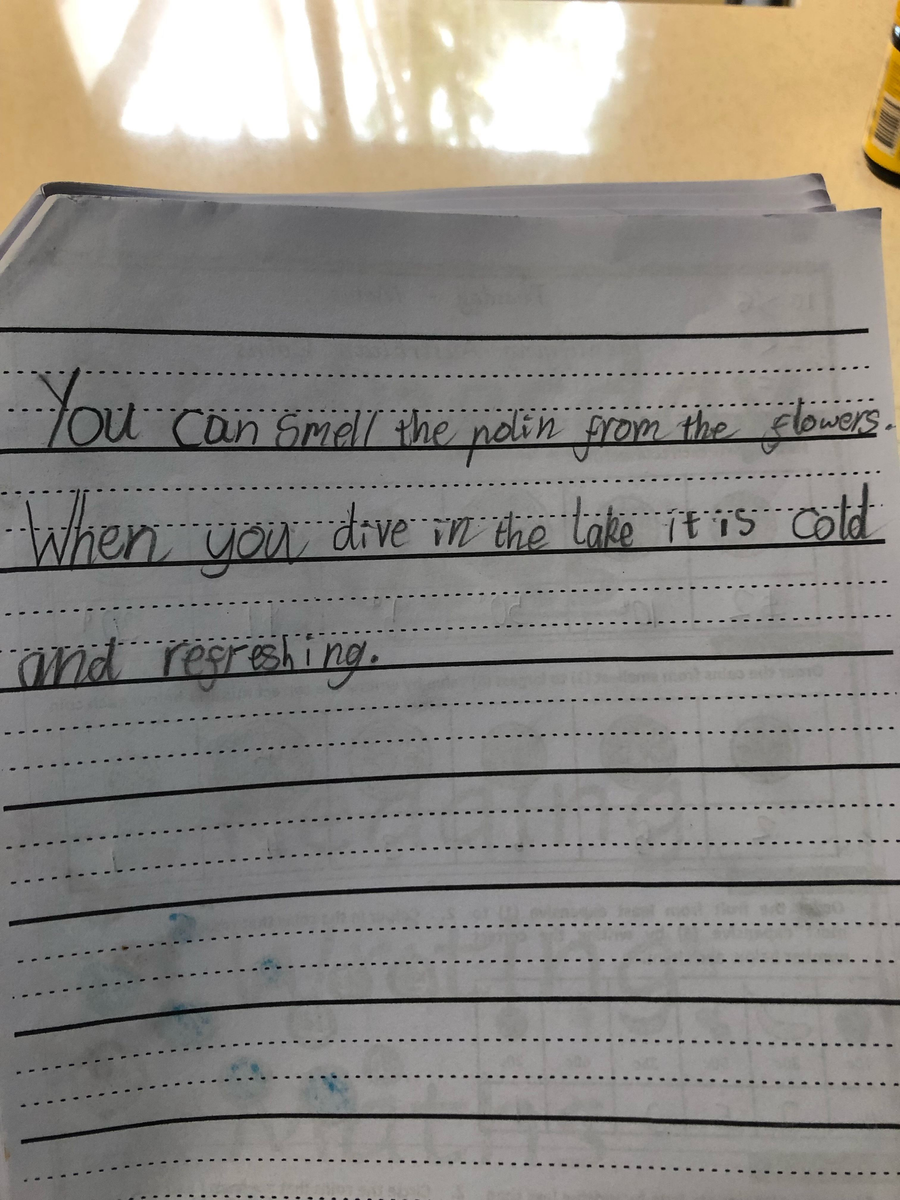 You can smell the polin from the flowers.
When you dive in the lake it is cold
and refreshing.